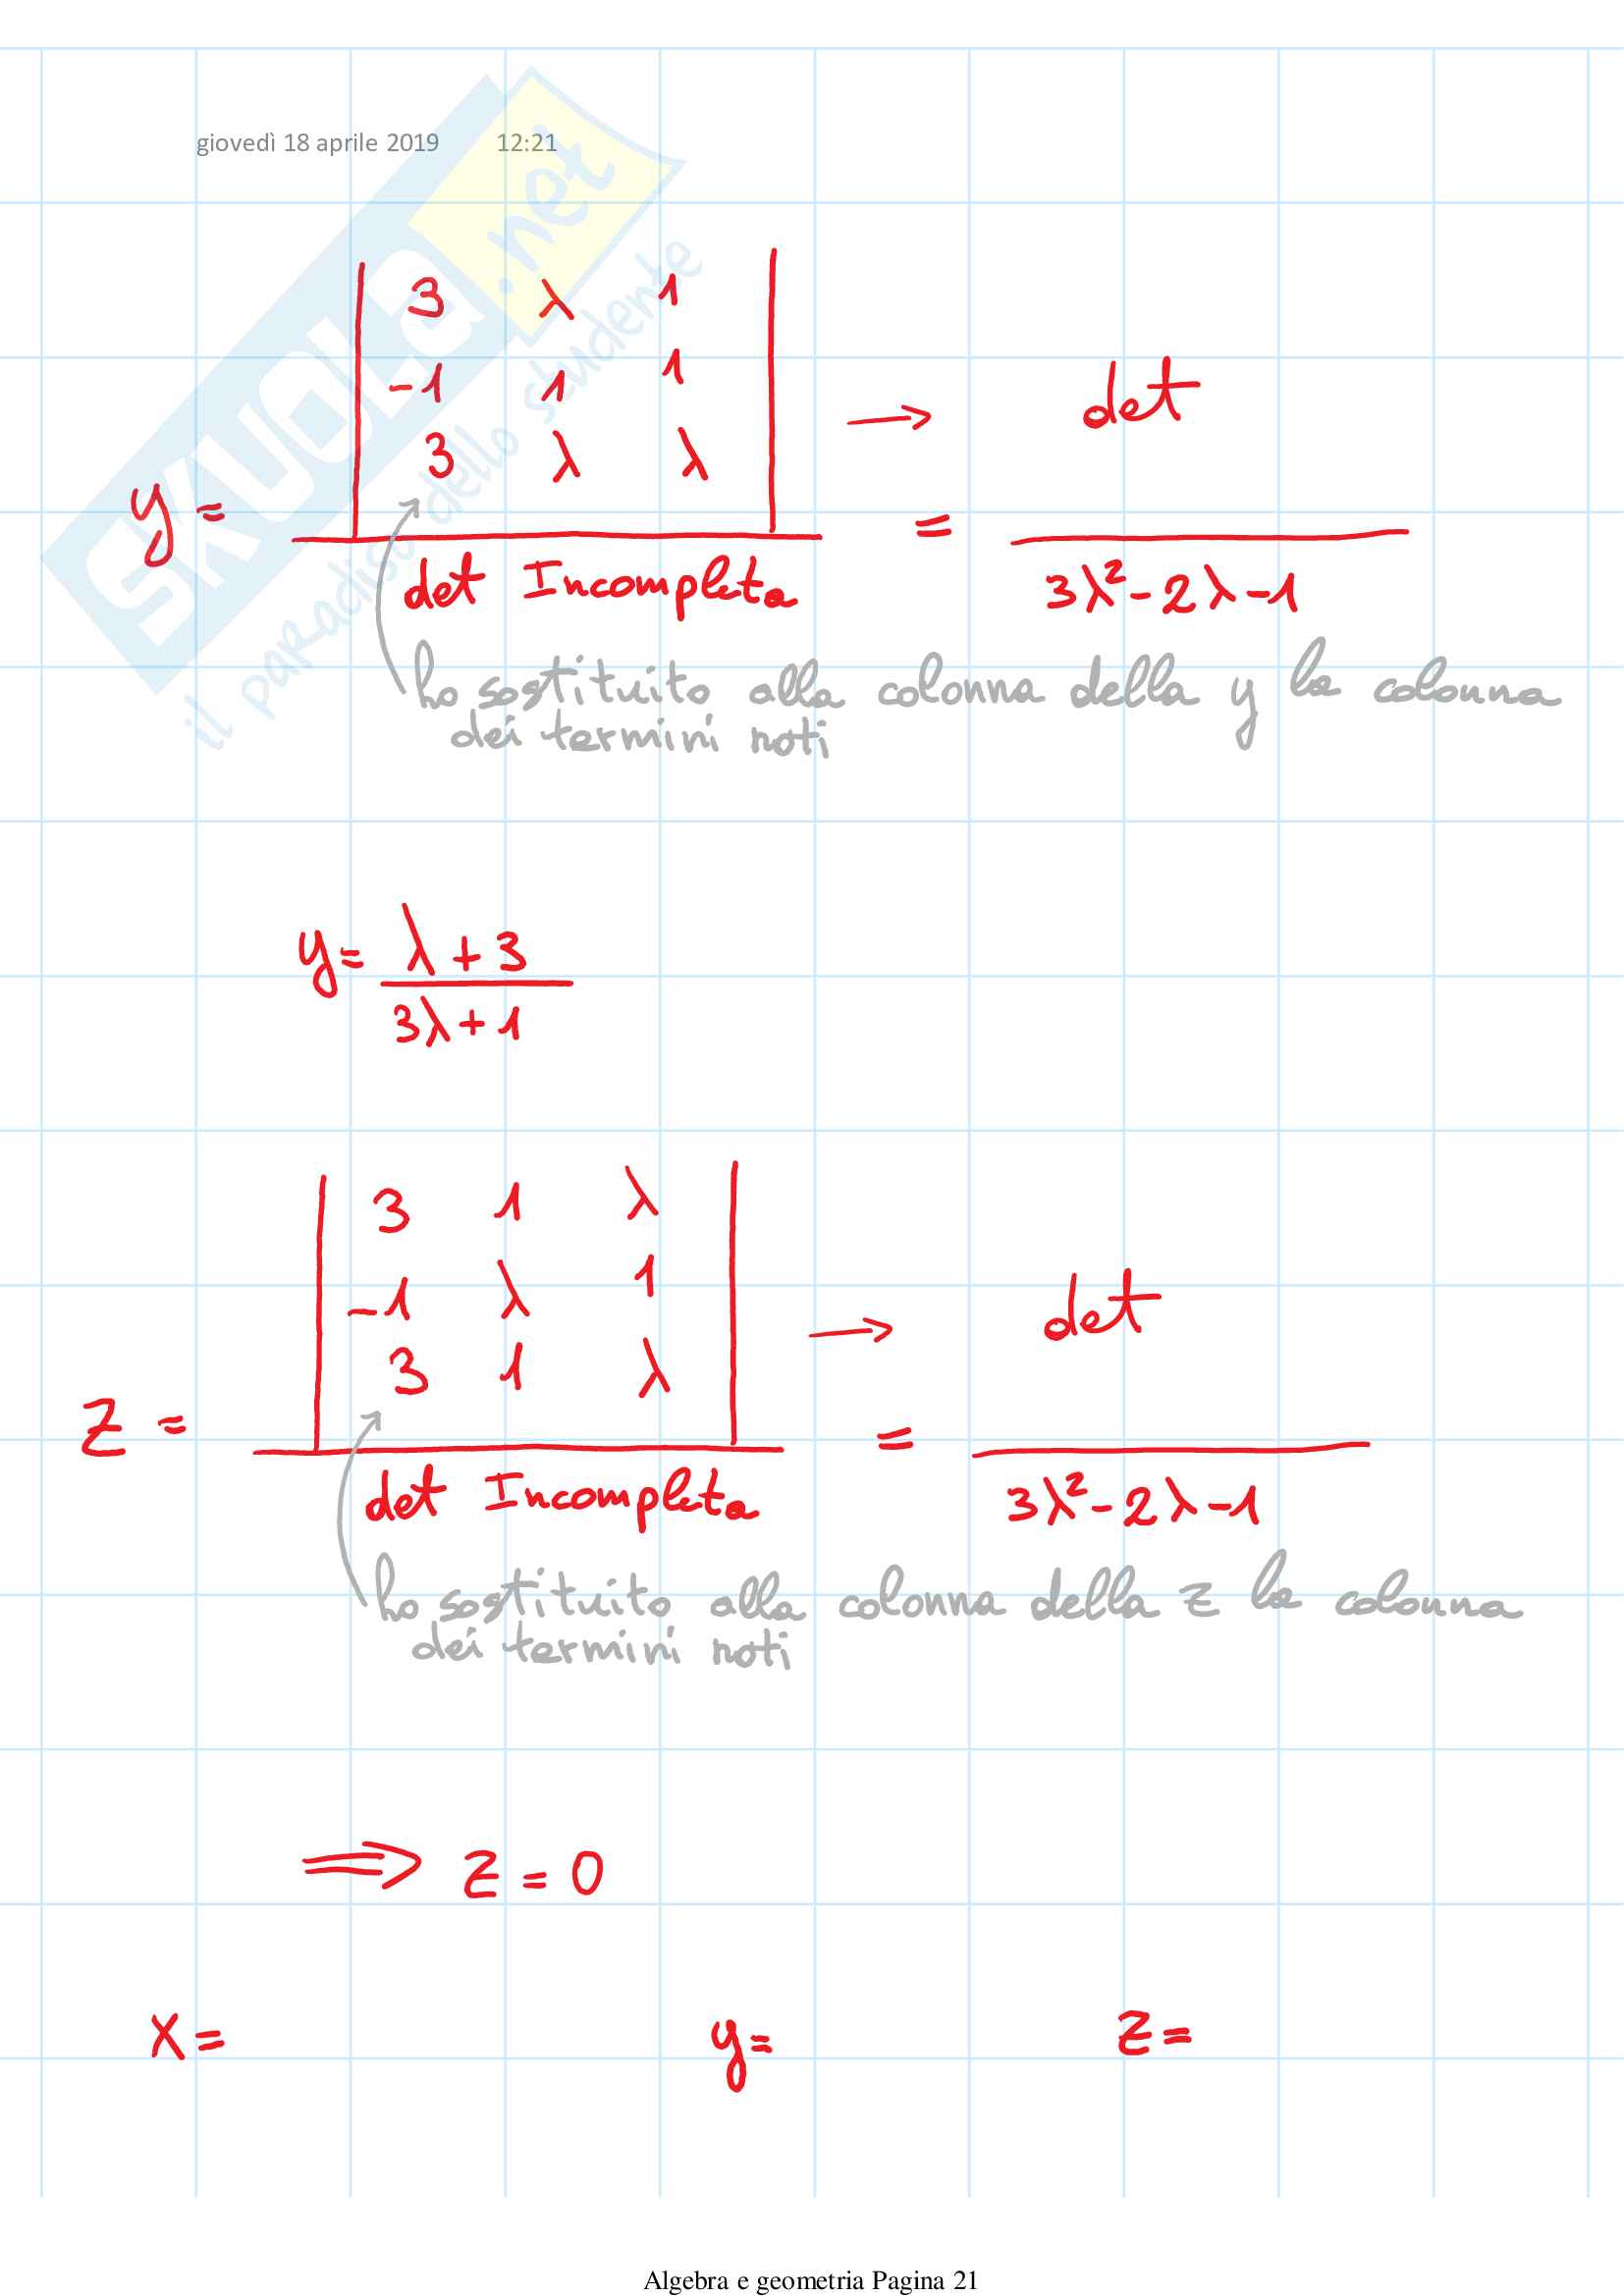 giovedì 18 aprile 2019 12:21
SKUOLA.net
il paradiso dello studente
3 λ 1
-1 1 1 → det
3 λ λ
y = =
det Incompleta 3λ²-2λ-1
ho sostituito alla colonna della y la colonna
dei termini noti
y= λ+3
3λ+1
3 1 λ
-1 λ 1 → det
3 1 λ
z = =
det Incompleta 3λ²-2λ-1
ho sostituito alla colonna della z la colonna
dei termini noti
⟹ z=0
x= y= z=
Algebra e geometria Pagina 21